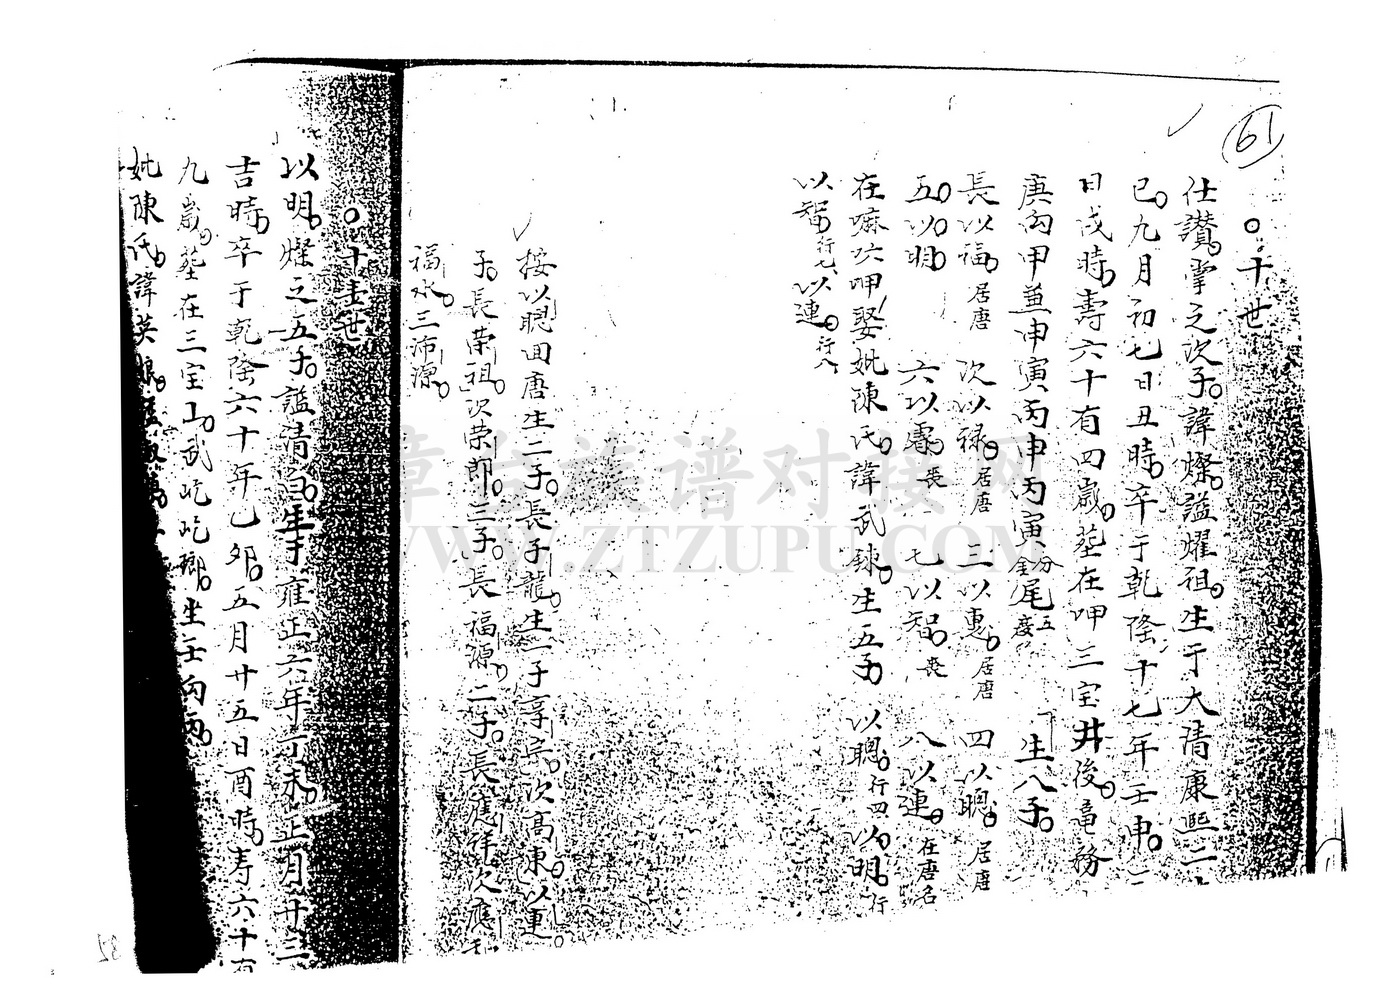 61
十世
仕讃掌之次子諱燦謚耀祖生于大清康熙二
巳九月初七日丑時卒于乾隆十七年壬申
日戌時壽六十有四歲塟在呷三宝井後
庚勾甲兼申寅丙申丙寅分金尾五度 生八子
長以福居唐 次以禄居唐 三以惠居唐 四以聰居唐
五以明 六以 喪 七以智喪 八以連在唐名
在嘛吹呷娶妣陳氏諱武錸生五子 以聰行四以明行
以智行七以連行八
按以聰回唐生二子長子龍生一子享宗次高東以連
子長荣祖次荣郎三子長福源二子長應祥次應
福水三沛源
十壹世
以明燦之五子謚清白生于雍正六年丁未正月廿三
吉時卒于乾隆六十年乙夘五月廿五日酉時寿六十有
九歲塟在三宝山武吃吃鄉坐壬向丙
妣陳氏諱英娘
58
章台族谱对接网
WWW.ZTZUPU.COM